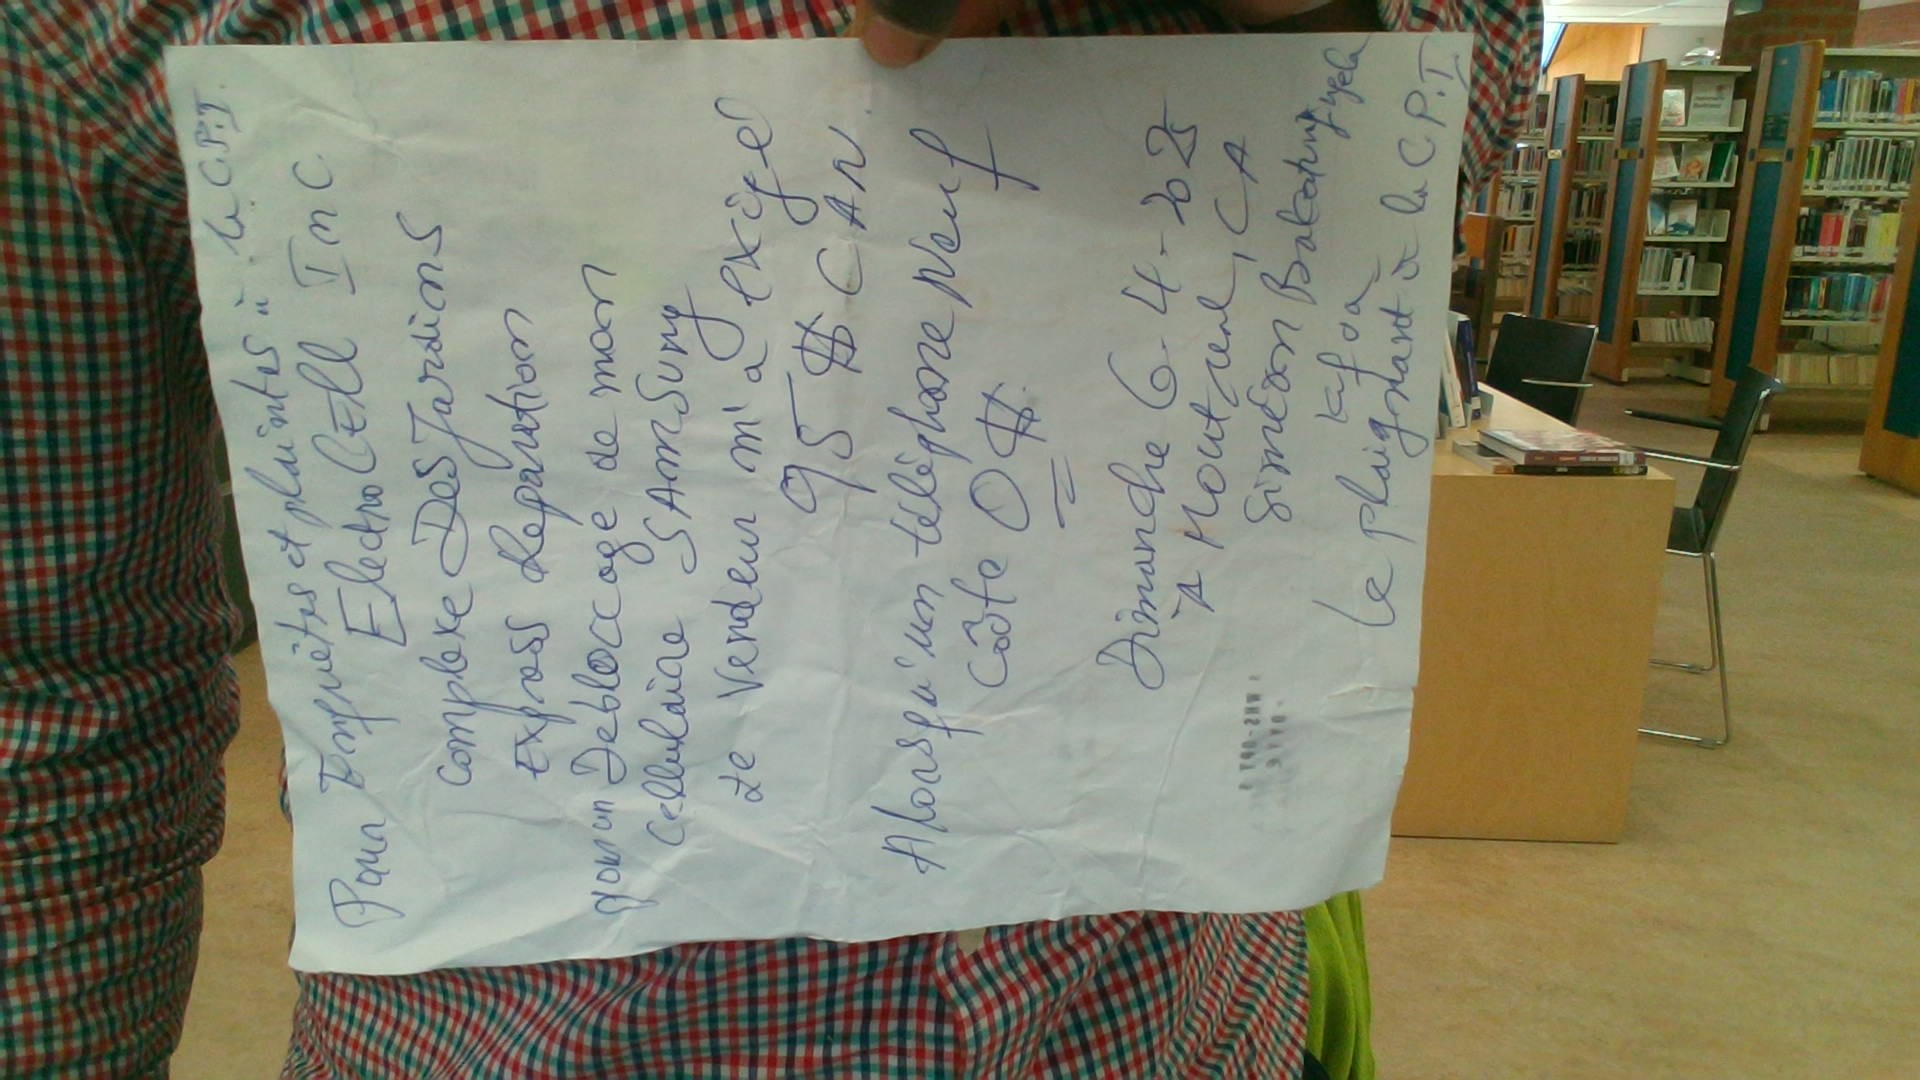 Pour Enquêtes et plaintes à la C.P.I.
ElectroCEll Inc
Complexe DesJardins
Express Reparation
pour un Deblocage de mon
Cellulaire SAmSung
Le Vendeur m'a exigé
95 $ CAN.
Alorsqu'un téléphone neuf
coûte 0$.
Dimanche 6-4-2025
à Montreal, CA
Siméon
le plaignant à la C.P.I